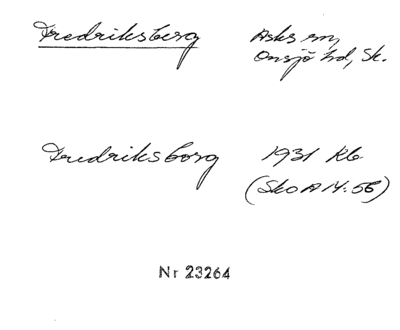 Fredriksberg Asks sn,
Onsjö hd, Sk.
Fredriksborg 1931 Kb
(SkO A 14:56)
Nr 23264